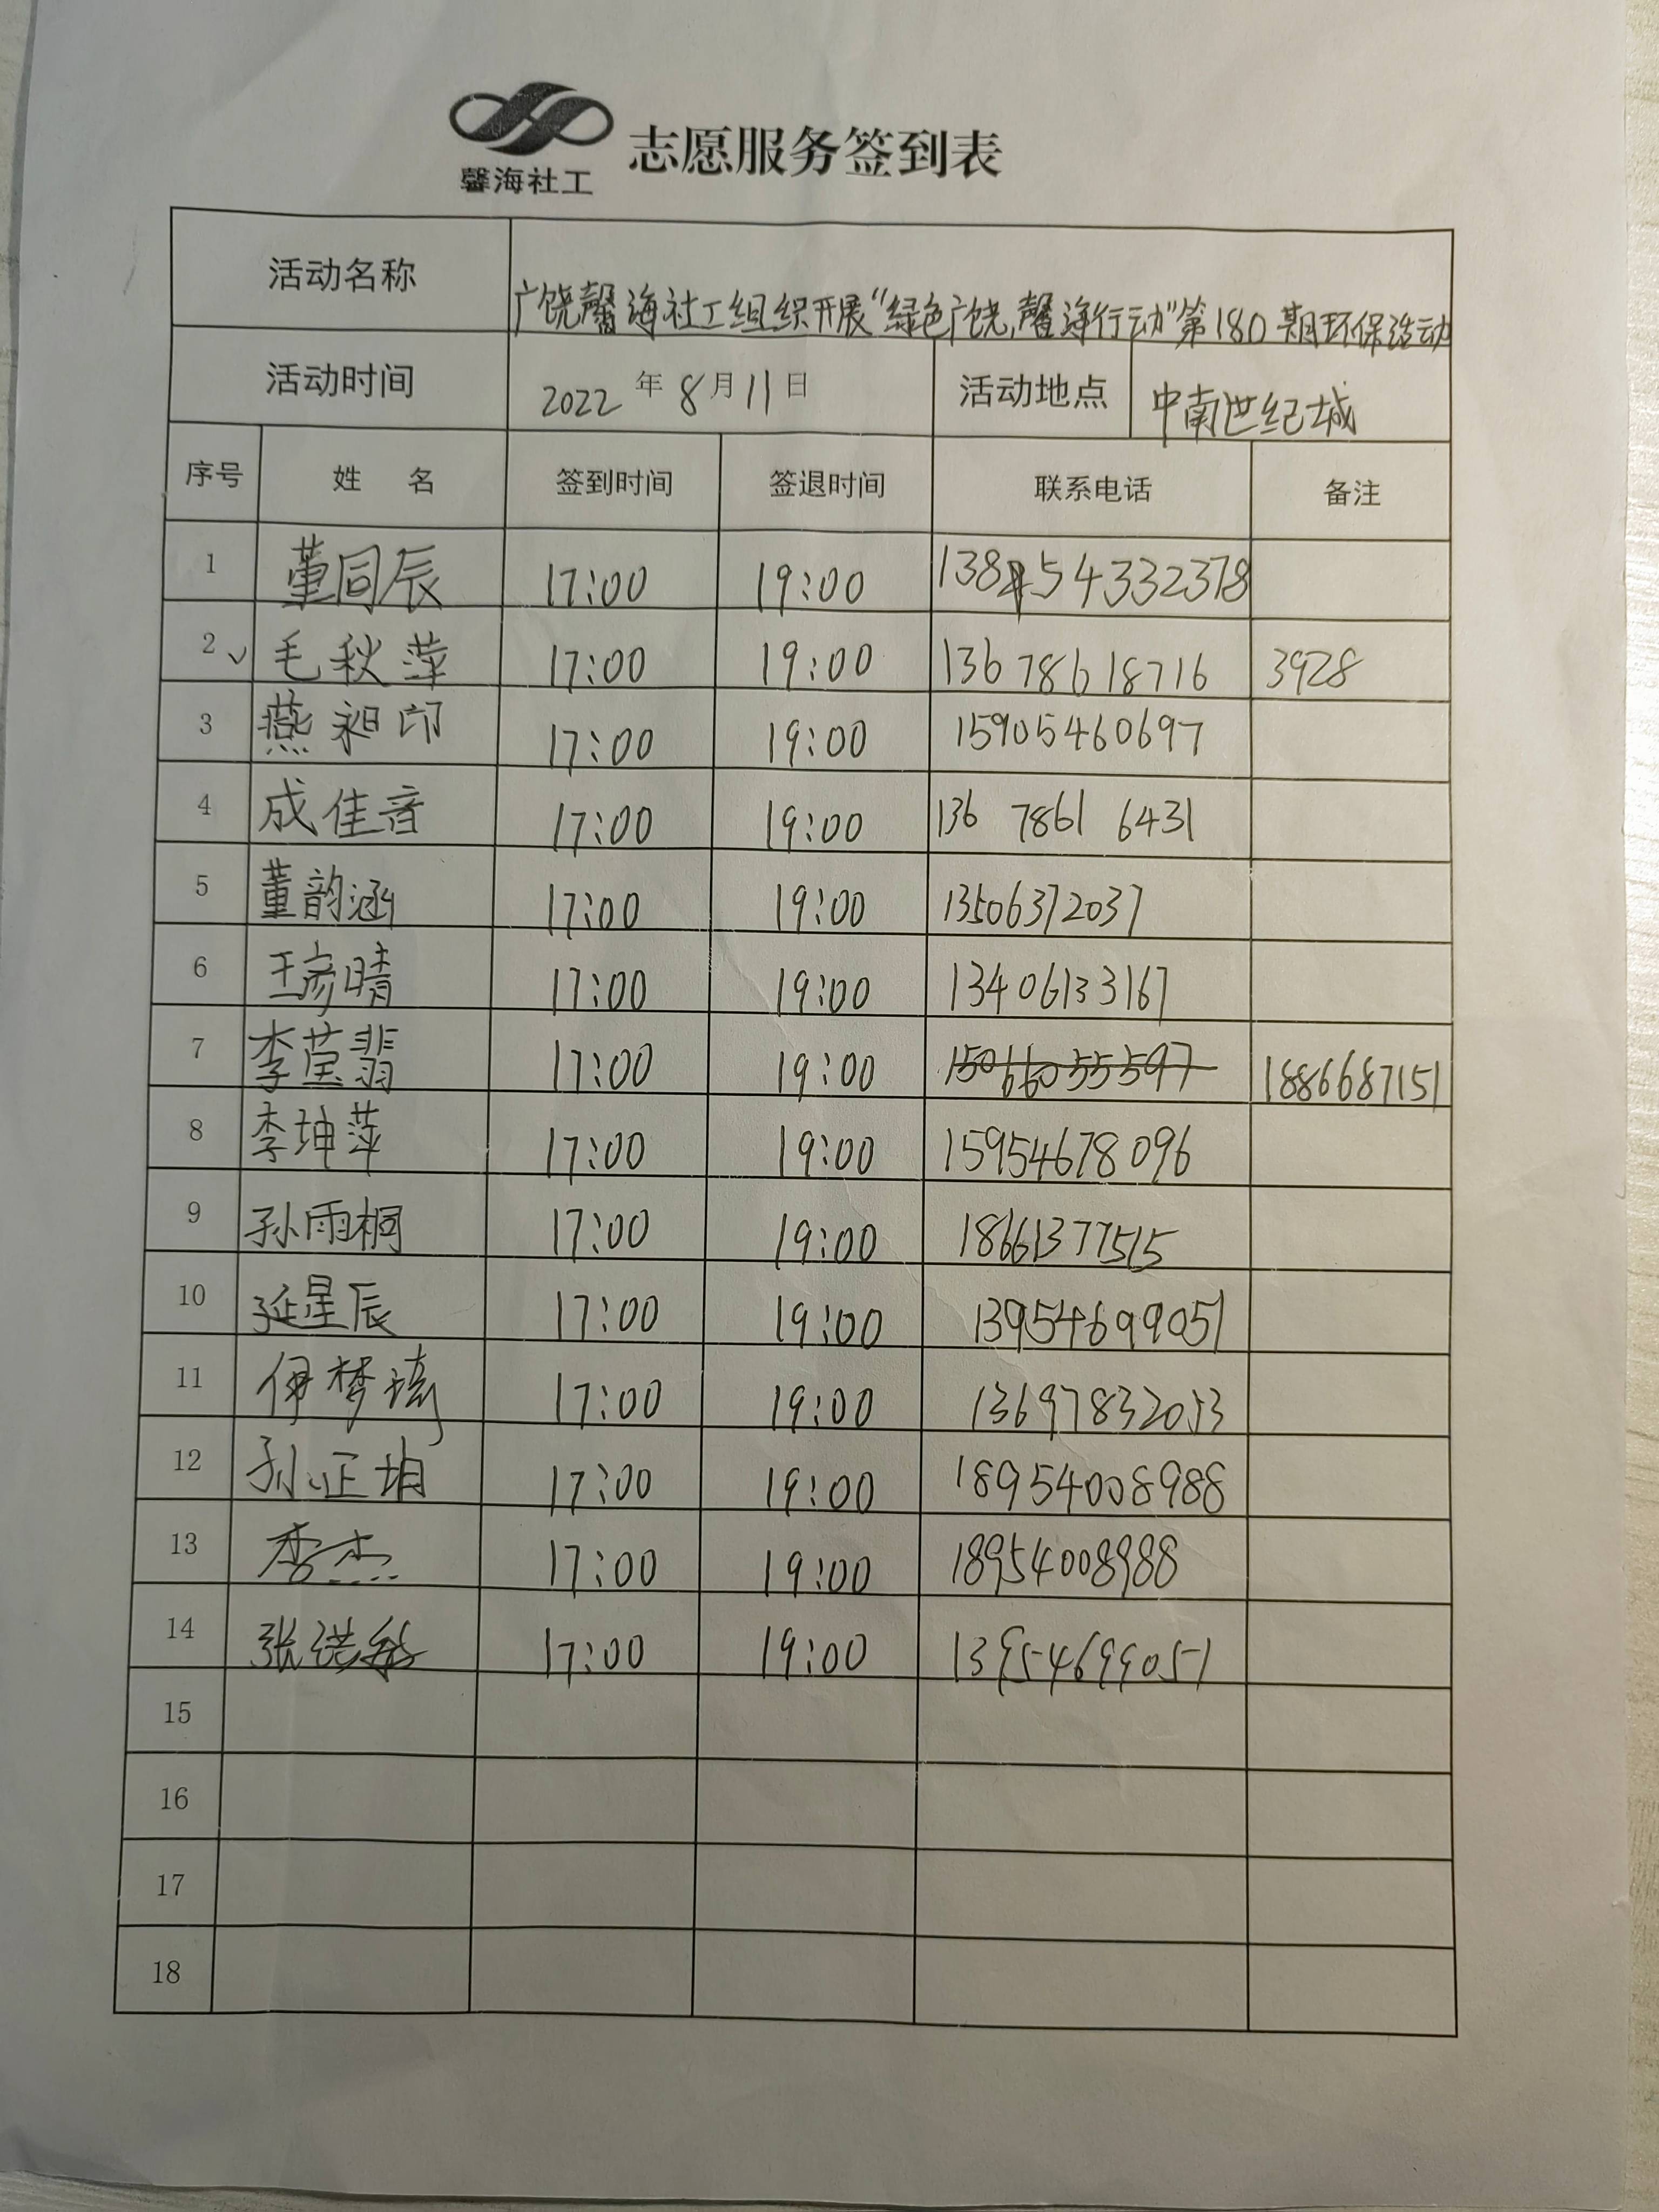 馨海社工
志愿服务签到表
活动名称 广饶馨海社工组织开展“绿色广饶,馨净行动”第180期环保活动
活动时间 2022年8月11日 活动地点 中南世纪城
序号 姓名 签到时间 签退时间 联系电话 备注
1 董同辰 17:00 19:00
2 毛秋萍 17:00 19:00 13678618716 3928
3 燕昶印 17:00 19:00 15905460697
4 成佳音 17:00 19:00 136 7861 6431
5 董韵涵 17:00 19:00 13506372037
6 王彦晴 17:00 19:00 13406133167
7 李莹翡 17:00 19:00 15066055597 1886687151
8 李坤萍 17:00 19:00 15954678096
9 孙雨桐 17:00 19:00 18661377515
10 延星辰 17:00 19:00 13954699051
11 伊梦琦 17:00 19:00 13697832053
12 孙正 17:00 19:00 18954008988
13 李杰 17:00 19:00 18954008988
14 张 17:00 19:00 13954699051
15
16
17
18